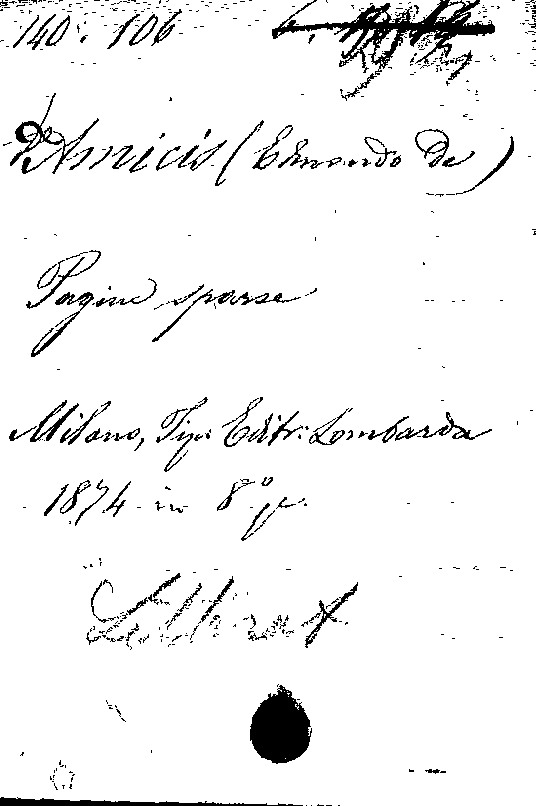 140. 106
De Amicis (Edmondo De)
Pagine sparse
Milano, Tip: Editr: Lombarda
1874 in 8º